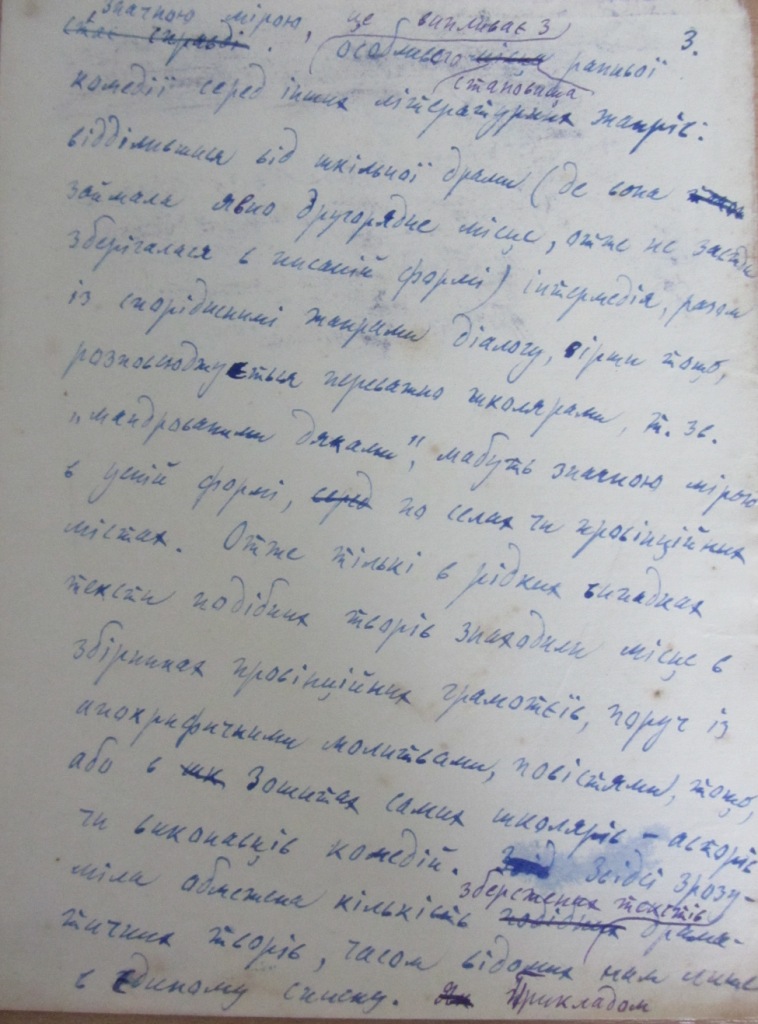 значною мірою, це випливає з 3.
стає справді. особливого місця ранньої
становища
комедії серед інших літературних жанрів:
відділившися від шкільної драми (де вона
займала явно другорядне місце, отже не
зберігалася в писаній формі) інтермедія, разом
із спорідненимі жанрами діалогу, вірши тощо,
розповсюджується переважно школярами, т. зв.
„мандрованими дяками", мабуть значною мірою
в усній формі, серед по селах чи провінційних
містах. Отже тількі в рідких випадках
тексти подібних творів знаходили місце в
збірниках провінційних грамотєїв, поруч із
апокрифичними молитвами, повістями, тощо,
або в шк зошитах самих школярів – авторів
чи виконавців комедій. Звід Звідсі зрозу-
збережених текстів
міла обмежена кількість подібних драма-
тичних творів, часом відомих нам лише
в єдиному списку. Як Прикладом